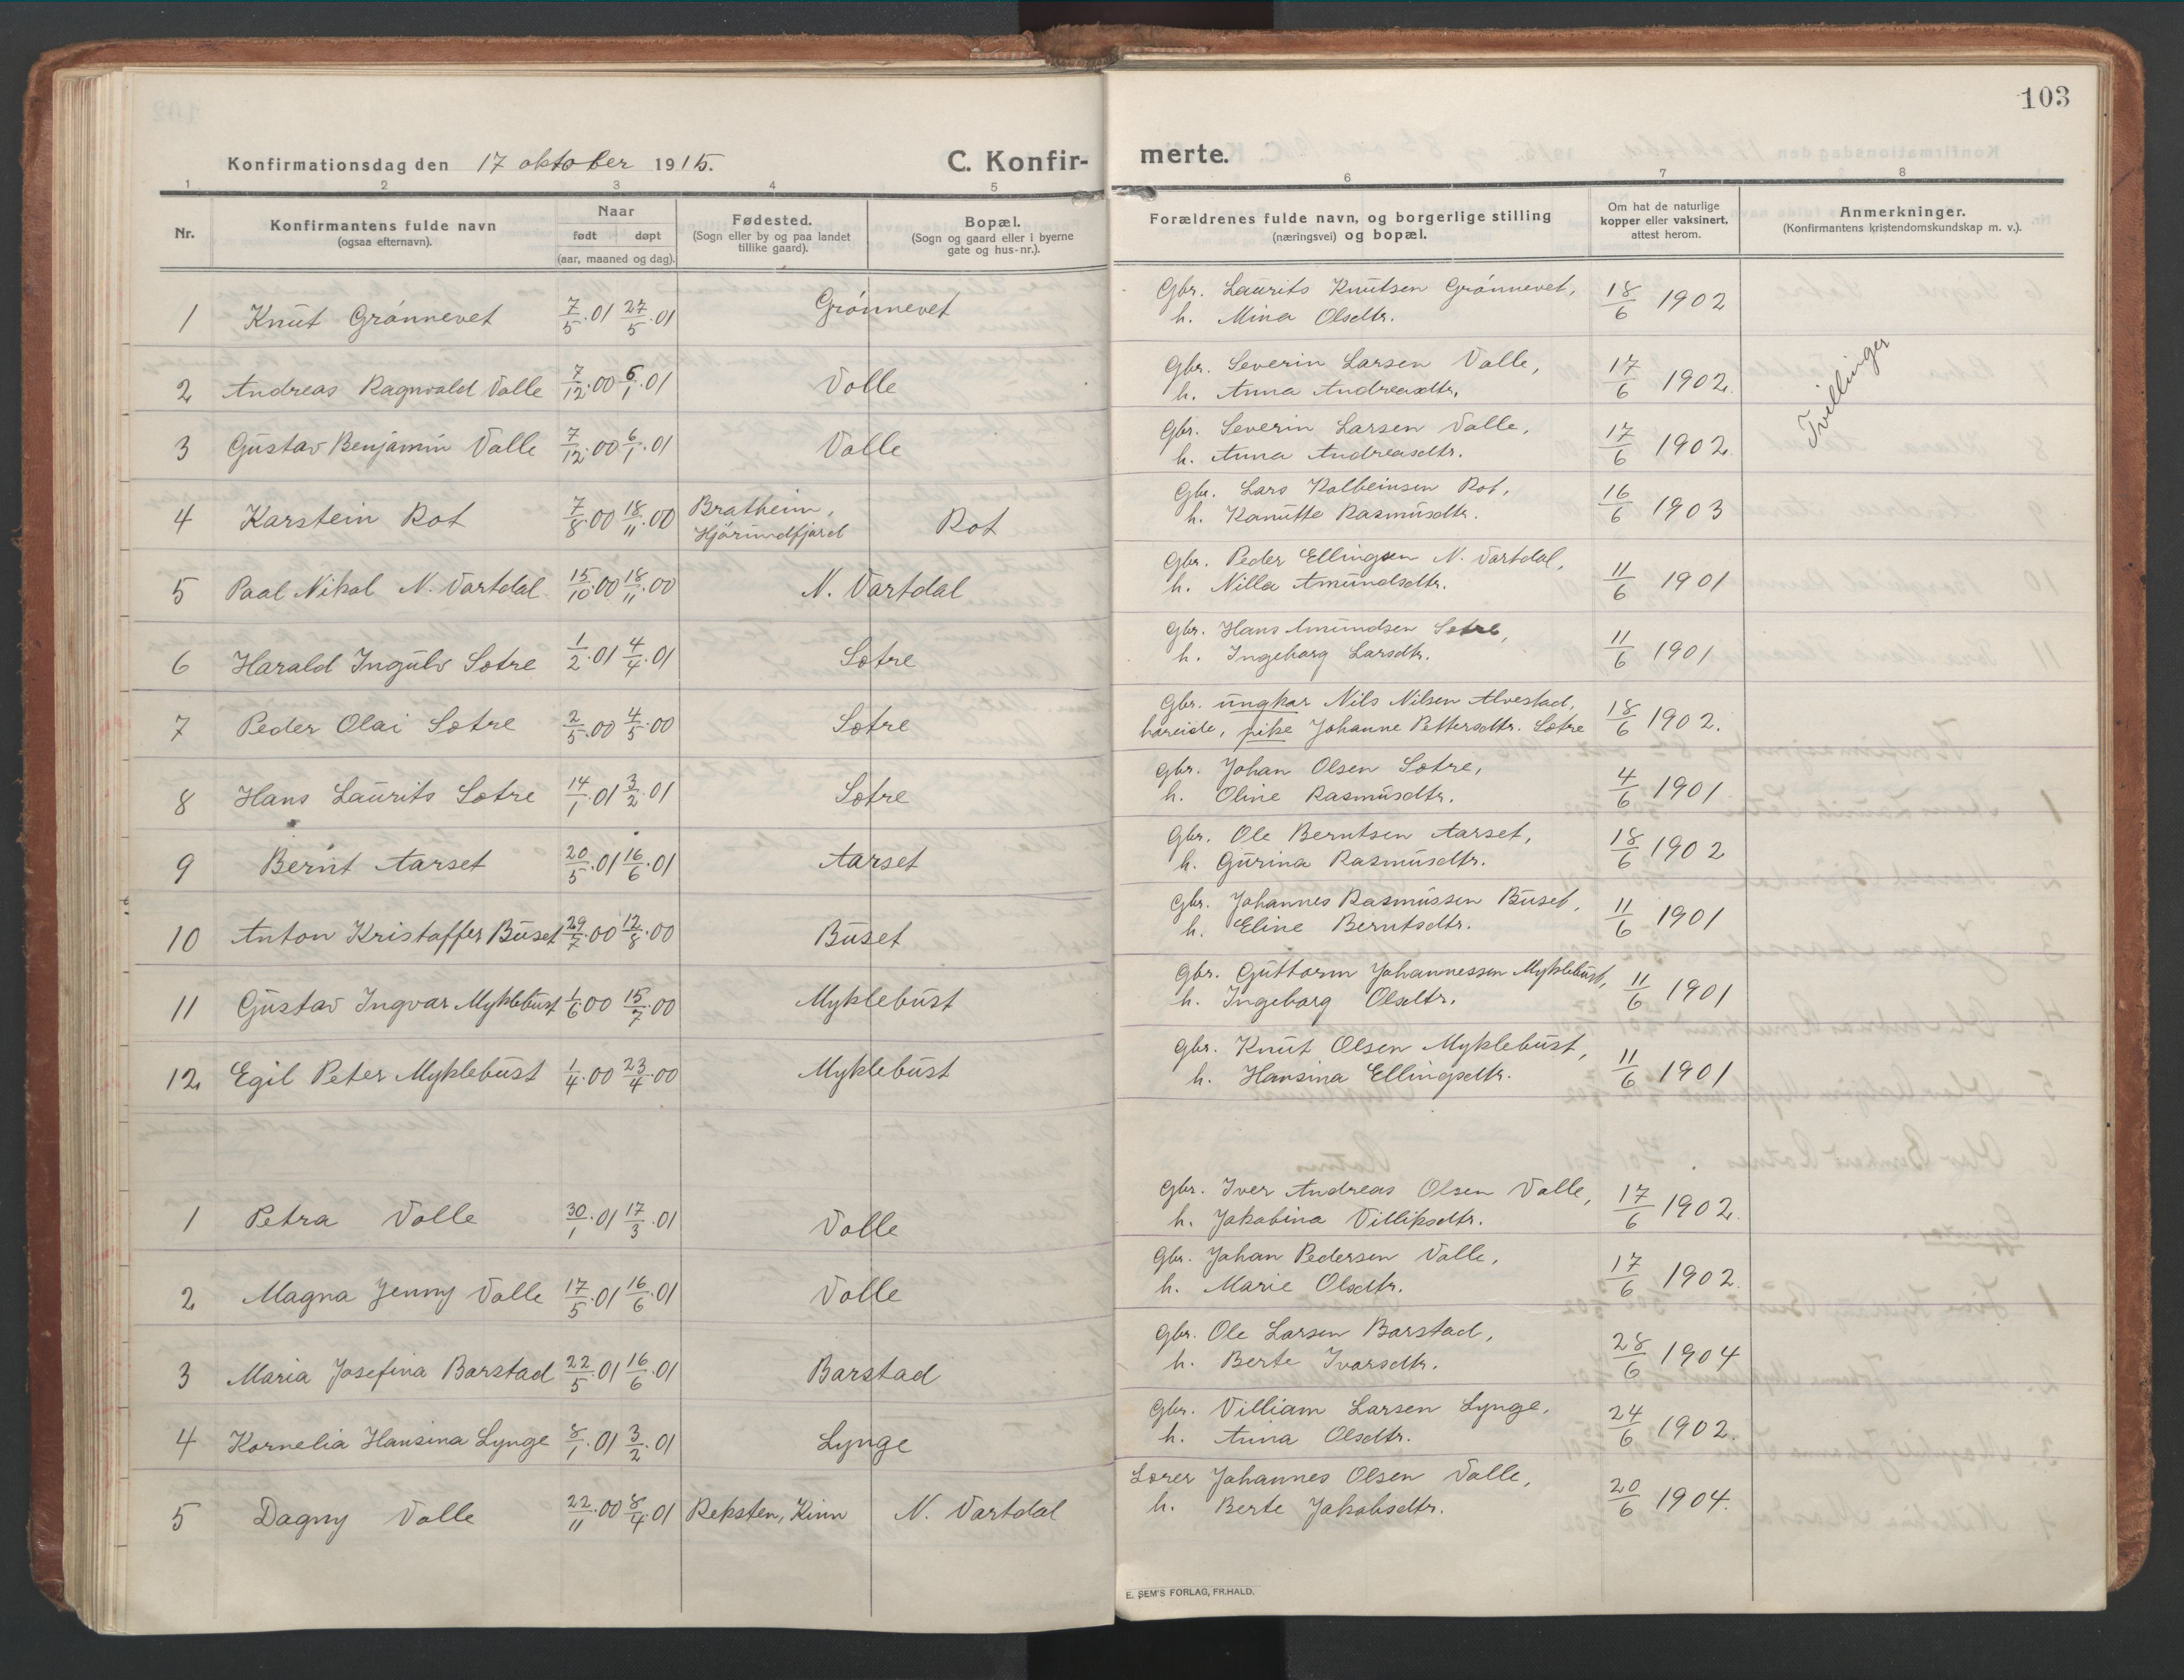 103
Konfirmationsdag den 17 oktober 1915. C. Konfir- merte.
1 2 3 4 5 6 7 8
Nr. Konfirmantens fulde navn (ogsaa efternavn). Naar født døpt (aar, maaned og dag). Fødested. (Sogn eller by og paa landet tillike gaard). Bopæl. (Sogn og gaard eller i byerne gate og hus-nr.). Forældrenes fulde navn, og borgerlige stilling (næringsvei) og bopæl. Om hat de naturlige kopper eller vaksinert, attest herom. Anmerkninger. (Konfirmantens kristendomskundskap m. v.).
1 Knut Grønnevet 7/5.01 27/5.01 Grønnevet Gbr. Laurits Knutsen Grønnevet, 18/6 1902
h. Mina Olsdtr.
2 Andreas Ragnvald Valle 7/12.00 6/1.01 Valle Gbr. Severin Larsen Valle, 17/6 1902. Tvillinger
h. Anna Andreasdtr.
3 Gustav Benjamin Valle 7/12.00 6/1.01 Valle Gbr. Severin Larsen Valle, 17/6 1902
h. Anna Andreasdtr.
4 Karstein Rot 7/8.00 18/11.00 Bratheim, Hjørundfjord Rot Gbr. Lars Kolbeinsen Rot, 16/6 1903
h. Kanutte Rasmusdtr.
5 Paal Nikol N. Vartdal 15/10.00 18/11.00 N. Vartdal Gbr. Peder Ellingsen N. Vartdal, 11/6 1901
h. Nilla Amundsdtr.
6 Harald Ingulv Sætre 1/2.01 4/4.01 Sætre Gbr. Hans Amundsen Sætre, 11/6 1901
h. Ingeborg Larsdtr.
7 Peder Olai Sætre 2/5.00 4/5.00 Sætre Gbr. ungkar Nils Nilsen Alvestad, 18/6 1902.
hareide, pike Johanne Pettersdtr. Sætre
8 Hans Laurits Sætre 14/1.01 3/2.01 Sætre Gbr. Johan Olsen Sætre, 4/6 1901
h. Oline Rasmusdtr.
9 Bernt Aarset 20/5.01 16/6.01 Aarset Gbr. Ole Berntsen Aarset, 18/6 1902
h. Gurina Rasmusdtr.
10 Anton Kristoffer Buset 29/7.00 12/8.00 Buset Gbr. Johannes Rasmussen Buset, 11/6 1901
h. Eline Berntsdtr.
11 Gustav Ingvar Myklebust 1/6.00 15/7.00 Myklebust Gbr. Guttorm Johannessen Myklebust, 11/6 1901
h. Ingeborg Olsdtr.
12 Egil Peter Myklebust 1/4.00 23/4.00 Myklebust Gbr. Knut Olsen Myklebust, 11/6 1901
h. Hansina Ellingsdtr.
1 Petra Valle 30/1.01 17/3.01 Valle Gbr. Iver Andreas Olsen Valle, 17/6 1902.
h. Jakobina Villiksdtr.
2 Magna Jenny Valle 17/5.01 16/6.01 Valle Gbr. Johan Pedersen Valle, 17/6 1902.
h. Marie Olsdtr.
3 Maria Josefina Barstad 22/5.01 16/6.01 Barstad Gbr. Ole Larsen Barstad, 28/6 1904
h. Berte Ivarsdtr.
4 Kornelia Hansina Lynge 8/1.01 3/2.01 Lynge Gbr. Villiam Larsen Lynge, 24/6 1902.
h. Anna Olsdtr.
5 Dagny Valle 22/11.00 8/4.01 Reksten, Kinn N. Vartdal Lærer Johannes Olsen Valle, 20/6 1904.
h. Berte Jakobsdtr.
E. SEM'S FORLAG, FR.HALD.